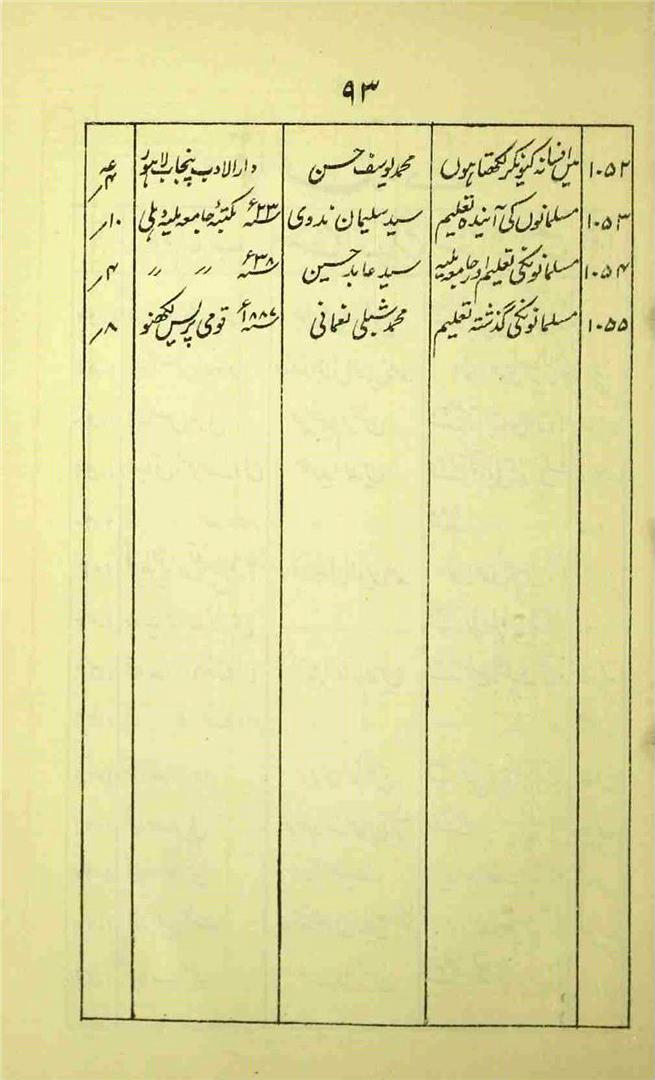 ۹۳
۱۰۵۲ میں افسانہ کیونکر لکھتا ہوں محمد یوسف حسن دارالادب پنجاب لاہور
۱۰۵۳ مسلمانوں کی آیندہ تعلیم سید سلیمان ندوی ۲۳ء مکتبۂ جامعہ ملیہ دہلی ۱۰؍
۱۰۵۴ مسلمانونکی تعلیم اور جامعہ ملیہ سید عابد حسین ۳۸ء 〃 〃 ۴؍
۱۰۵۵ مسلمانونکی گذشتہ تعلیم محمد شبلی نعمانی ۱۸۸۷ء قومی پریس لکھنو ۸؍